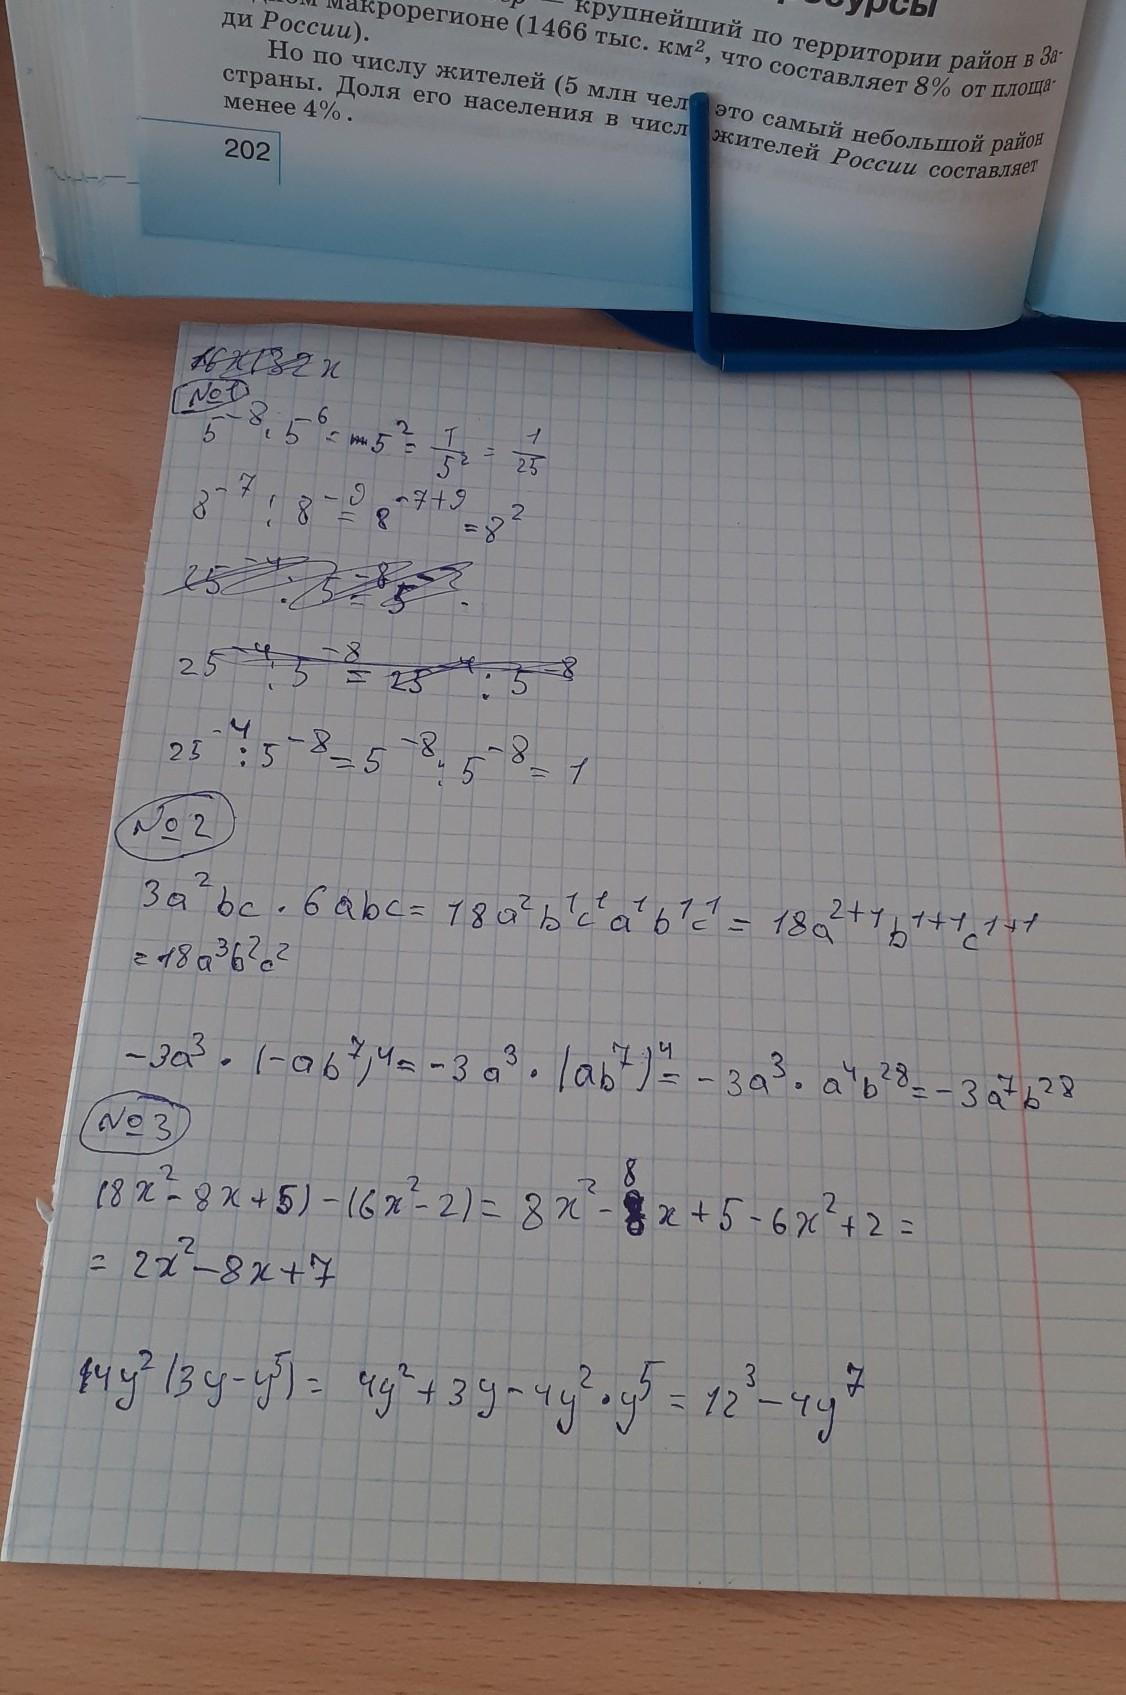 ресурсы
— крупнейший по территории район в За-
макрорегионе (1466 тыс. км², что составляет 8% от площа-
ди России).
Но по числу жителей (5 млн чел это самый небольшой район
страны. Доля его населения в числ жителей России составляет
менее 4%.
202
№1
5⁻⁸ · 5⁶ = 5² = 1/5² = 1/25
8⁻⁷ : 8⁻⁹ = 8⁻⁷⁺⁹ = 8²
25⁻⁴ : 5⁻⁸ = 5
25⁻⁴ : 5⁻⁸ = 25⁻⁴ : 5⁻⁸
25⁻⁴ : 5⁻⁸ = 5⁻⁸ : 5⁻⁸ = 1
№2
3a²bc · 6abc = 18a²b¹c¹a¹b¹c¹ = 18a²⁺¹b¹⁺¹c¹⁺¹
= 18a³b²c²
-3a³ · (-ab⁷)⁴ = -3a³ · (ab⁷)⁴ = -3a³ · a⁴b²⁸ = -3a⁷b²⁸
№3
(8x² - 8x + 5) - (6x² - 2) = 8x² - 8x + 5 - 6x² + 2 =
= 2x² - 8x + 7
4y² (3y - y⁵) = 4y² + 3y - 4y² · y⁵ = 12³ - 4y⁷